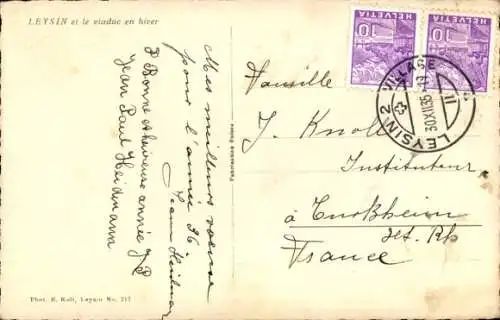 LEYSIN et le viaduc en hiver
Mes meilleurs voeux
pour l'année 36
Jean Heidemann
Bonne et heureuse année
Jean Paul Heidemann
Phot. E. Rodi, Leysin No. 212
HELVETIA
10
HELVETIA
10
LEYSIN 2 VILLAGE
30.XII.35
Famille
J. Knoll
Instituteur
à Turkheim
Hrh
France